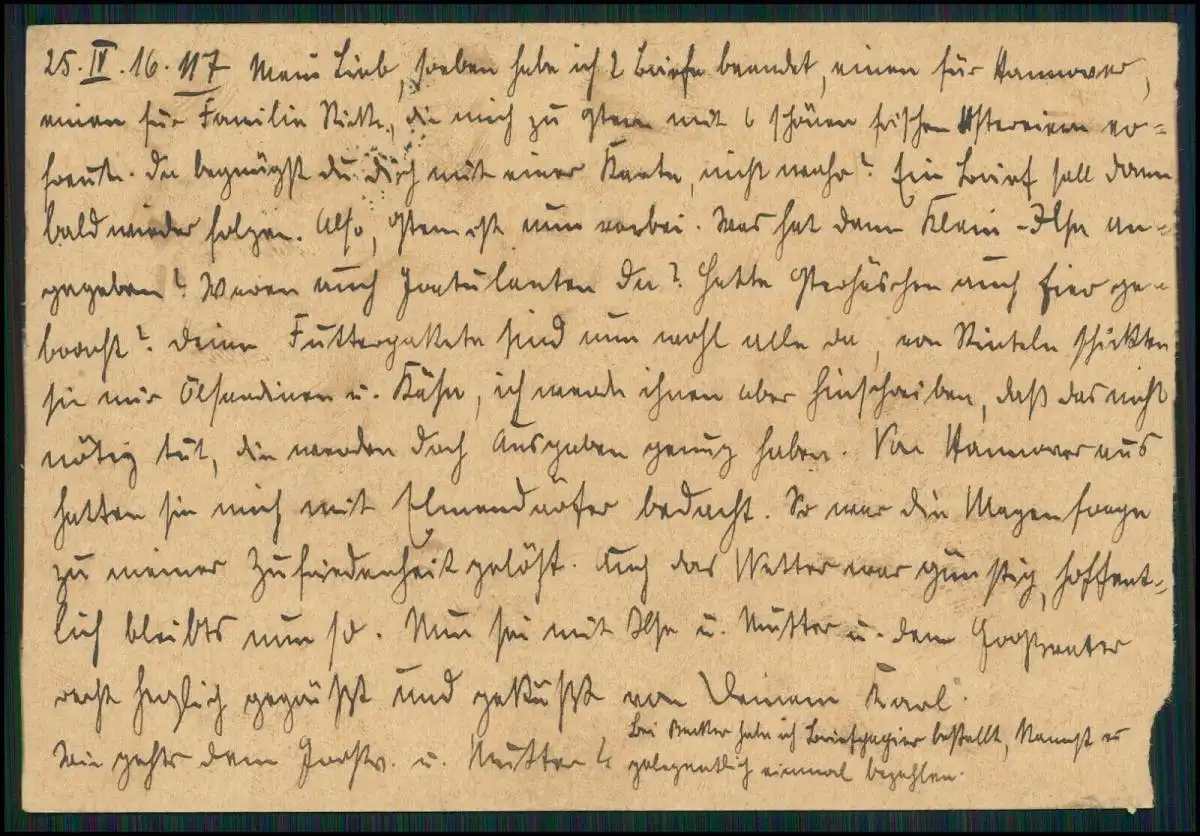 25. IV. 16. 117 Mein Lieb, soeben habe ich 2 Briefe beendet, einen für Hannover,
einen für Familie, die mich zu Ostern mit 6 schönen frischen Ostereiern er-
freute. Da begnügst du dich mit einer Karte, nicht wahr? Ein Brief soll dann
bald wieder folgen. Also, Ostern ist nun vorbei. Was hat denn Klein-Ilse an-
gegeben? Waren auch Gratulanten da? Hatte Osterhäschen auch Eier ge-
bracht? Deine Futterpakete sind nun wohl alle da, von Rinteln schickten
sie mir Ölsardinen u. Käse, ich werde ihnen aber hinschreiben, daß das nicht
nötig tut, die werden doch Ausgaben genug haben. Von Hannover aus
hatten sie mich mit Elmendörfer bedacht. So war die Magenfrage
zu meiner Zufriedenheit gelöst. Auch das Wetter war günstig, hoffent-
lich bleibts nun so. Nun sei mit Ilse u. Mutter u. dem Großvater
recht herzlich gegrüßt und geküßt von Deinem Karl.
Wie gehts dem Großv. u. Mutter?
Bei Becker habe ich Briefpapier bestellt, kannst es
gelegentlich einmal bezahlen.